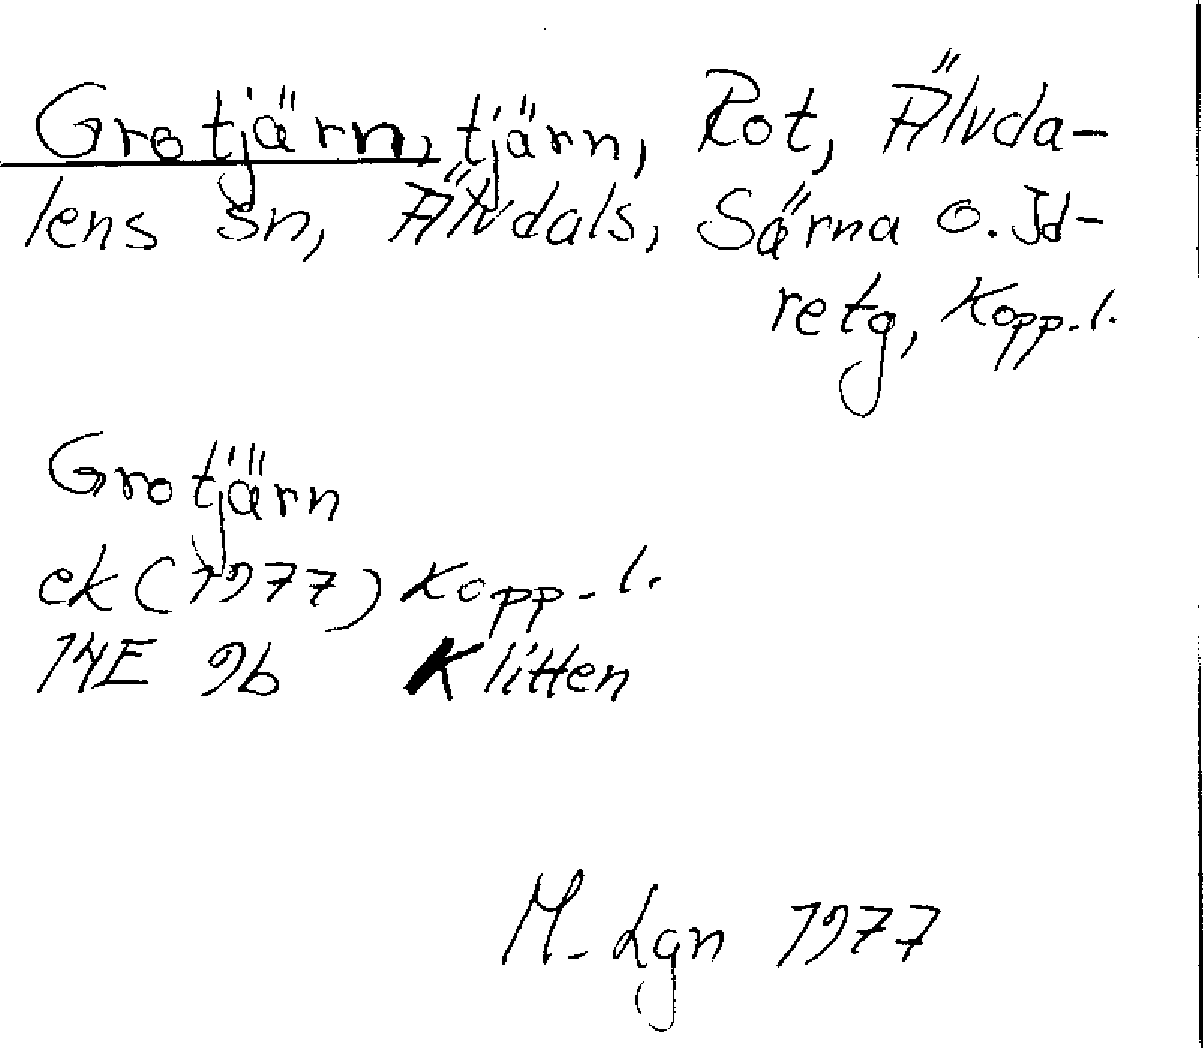 Grotjärn, tjärn, Rot, Älvda-
lens sn, Älvdals, Särna o. Id-
retg, Kopp. l.
Grotjärn
ek (1977) Kopp. l.
14E 9b Klitten
M. Lgn 1977